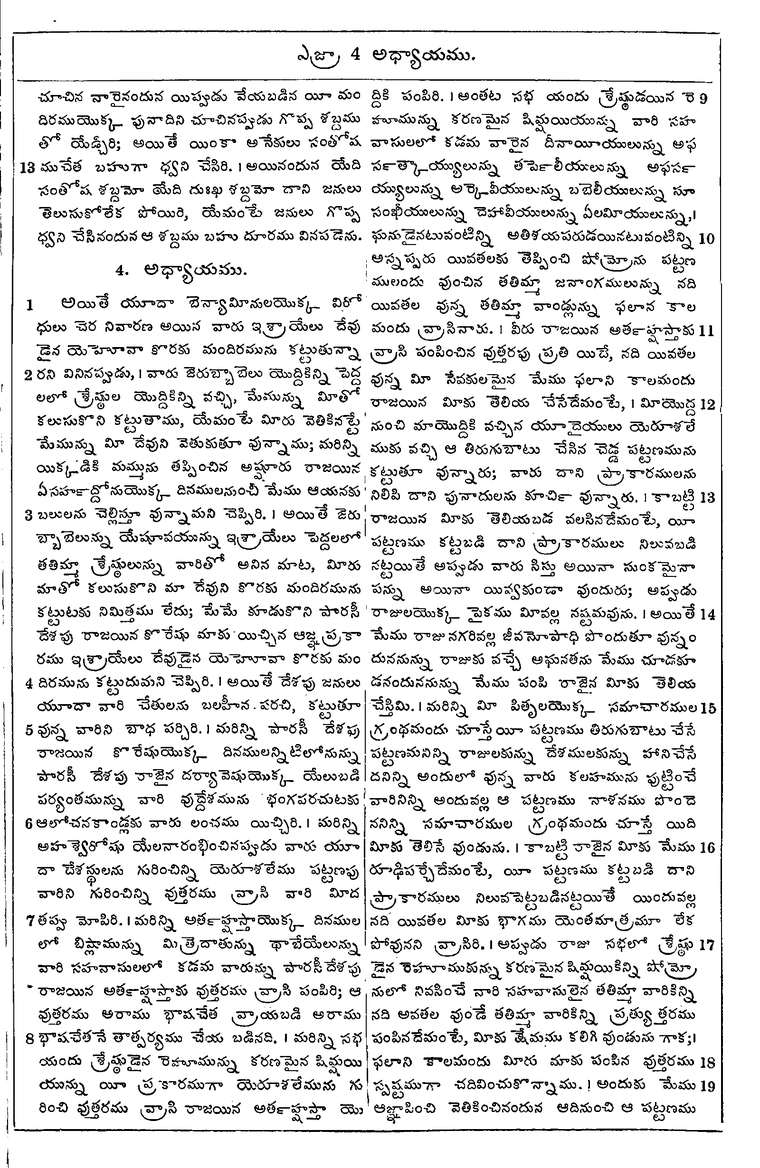 ఎజ్రా 4 అధ్యాయము.
చూచిన వారైనందున యిప్పుడు వేయబడిన యీ మం
దిరముయొక్క పునాదిని చూచినప్పుడు గొప్ప శబ్దము
తో యేడ్చిరి; అయితే యింకా అనేకులు సంతోష
13 ముచేత బహుగా ధ్వని చేసిరి. । అయినందున యేది
సంతోష శబ్దమో యేది దుఃఖ శబ్దమో దాని జనులు
తెలుసుకోలేక పోయిరి, యేమంటే జనులు గొప్ప
ధ్వని చేసినందున ఆ శబ్దము బహు దూరము వినపడెను.
4. అధ్యాయము.
1 అయితే యూదా బెన్యామీనులయొక్క విరో
ధులు చెర నివారణ అయిన వారు ఇశ్రాయేలు దేవు
డైన యెహోవా కొరకు మందిరమును కట్టుతున్నా
2 రని వినినప్పుడు, । వారు జెరుబ్బాబెలు యొద్దికిన్ని పెద్ద
లలో శ్రేష్ఠుల యొద్దికిన్ని వచ్చి, మేమున్ను మీతో
కలుసుకొని కట్టుతాము, యేమంటే మీరు వెతికినట్టే
మేమున్ను మీ దేవుని వెతుకుతూ వున్నాము; మరిన్ని
యిక్కడికి మమ్మును తెప్పించిన అష్షూరు రాజయిన
ఏసర్హద్దోనుయొక్క దినములనుంచీ మేము ఆయనకు
3 బలులను చెల్లిస్తూ వున్నామని చెప్పిరి. । అయితే జెరు
బ్బాబెలున్ను యేషూవయున్ను ఇశ్రాయేలు పెద్దలలో
తతిమ్మా శ్రేష్ఠులున్ను వారితో అనిన మాట, మీరు
మాతో కలుసుకొని మా దేవుని కొరకు మందిరమును
కట్టుటకు నిమిత్తము లేదు; మేమే కూడుకొని పారసీ
దేశపు రాజయిన కొరేషు మాకు యిచ్చిన ఆజ్ఞ ప్రకా
రము ఇశ్రాయేలు దేవుడైన యెహోవా కొరకు మం
4 దిరమును కట్టుదుమని చెప్పిరి. । అయితే దేశపు జనులు
యూదా వారి చేతులను బలహీన పరచి, కట్టుతూ
5 వున్న వారిని బాధ పర్చిరి. । మరిన్ని పారసీ దేశపు
రాజయిన కొరేషుయొక్క దినములన్నిటిలోనున్ను
పారసీ దేశపు రాజైన దర్యావెషుయొక్క యేలుబడి
పర్యంతమున్ను వారి వుద్దేశమును భంగపరచుటకు
6 ఆలోచనకాండ్లకు వారు లంచము యిచ్చిరి. । మరిన్ని
అహశ్వెరోషు యేలనారంభించినప్పుడు వారు యూ
దా దేశస్థులను గురించిన్ని యెరూశలేము పట్టణపు
వారిని గురించిన్ని వుత్తరము వ్రాసి వారి మీద
7 తప్పు మోపిరి. । మరిన్ని అర్తహ్షస్తాయొక్క దినముల
లో బిష్లామున్ను మిత్రెదాతున్ను థాబేయేలున్ను
వారి సహవాసులలో కడమ వారున్ను పారసీదేశపు
రాజయిన అర్తహ్షస్తాకు వుత్తరము వ్రాసి పంపిరి; ఆ
వుత్తరము అరాము భాషచేత వ్రాయబడి అరాము
8 భాషచేతనే తాత్పర్యము చేయ బడినది. । మరిన్ని సభ
యందు శ్రేష్ఠుడైన రెహూమున్ను కరణమైన షిమ్షయి
యున్ను యీ ప్రకారముగా యెరూశలేమును గు
రించి వుత్తరము వ్రాసి రాజయిన అర్తహ్షస్తా యొ
ద్దికి పంపిరి. । అంతట సభ యందు శ్రేష్ఠుడయిన రె 9
హూమున్ను కరణమైన షిమ్షయియున్ను వారి సహ
వాసులలో కడమ వారైన దీనాయీయులున్ను అఫ
ర్సత్కాయ్యులున్ను తర్పెలీయులున్ను అఫర్స
య్యులున్ను అర్కెవీయులున్ను బబెలీయులున్ను సూ
సంఖీయులున్ను దెహావీయులున్ను ఏలమీయులున్ను,।
ఘనుడైనటువంటిన్ని అతిశయపరుడయినటువంటిన్ని 10
అస్నప్పరు యివతలకు తెప్పించి షోమ్రోను పట్టణ
ములందు వుంచిన తతిమ్మా జనాంగములున్ను నది
యివతల వున్న తతిమ్మా వాండ్లున్ను ఫలాన కాల
మందు వ్రాసినారు. । వీరు రాజయిన అర్తహ్షస్తాకు 11
వ్రాసి పంపించిన వుత్తరపు ప్రతి యిదే, నది యివతల
వున్న మీ సేవకులమైన మేము ఫలాని కాలమందు
రాజయిన మీకు తెలియ చేసేదేమంటే, । మీయొద్ద 12
నుంచి మాయొద్దికి వచ్చిన యూదైయులు యెరూశలే
ముకు వచ్చి ఆ తిరుగుబాటు చేసిన చెడ్డ పట్టణమును
కట్టుతూ వున్నారు; వారు దాని ప్రాకారములను
నిలిపి దాని పునాదులను కూర్చి వున్నారు. । కాబట్టి 13
రాజయిన మీకు తెలియబడ వలసినదేమంటే, యీ
పట్టణము కట్టబడి దాని ప్రాకారములు నిలువబడి
నట్టయితే అప్పుడు వారు సిస్తు అయినా సుంకమైనా
పన్ను అయినా యివ్వకుండా వుందురు; అప్పుడు
రాజులయొక్క పైకము మీవల్ల నష్టమవును. । అయితే 14
మేము రాజు నగరివల్ల జీవనోపాధి పొందుతూ వున్నం
దుననున్ను రాజుకు వచ్చే అఘనతను మేము చూడకూ
డనందుననున్ను మేము పంపి రాజైన మీకు తెలియ
చేస్తిమి. । మరిన్ని మీ పితృలయొక్క సమాచారముల 15
గ్రంథమందు చూస్తే యీ పట్టణము తిరుగుబాటు చేసే
పట్టణమనిన్ని రాజులకున్ను దేశములకున్ను హానిచేసే
దనిన్ని అందులో వున్న వారు కలహమును పుట్టించే
వారినిన్ని అందువల్ల ఆ పట్టణము నాశనము పొందె
ననిన్ని సమాచారముల గ్రంథమందు చూస్తే యిది
మీకు తెలిసే వుండును. । కాబట్టి రాజైన మీకు మేము 16
రూఢిపర్చేదేమంటే, యీ పట్టణము కట్టబడి దాని
ప్రాకారములు నిలువపెట్టబడినట్టయితే యిందువల్ల
నది యివతల మీకు భాగము యెంతమాత్రమూ లేక
పోవునని వ్రాసిరి. । అప్పుడు రాజు సభలో శ్రేష్ఠు 17
డైన రెహూముకున్ను కరణమైన షిమ్షయికిన్ని షోమ్రో
నులో నివసించే వారి సహవాసులైన తతిమ్మా వారికిన్ని
నది అవతల వుండే తతిమ్మా వారికిన్ని ప్రత్యుత్తరము
పంపినదేమంటే, మీకు క్షేమము కలిగి వుండును గాక;।
ఫలాని కాలమందు మీరు మాకు పంపిన వుత్తరము 18
స్పష్టముగా చదివించుకొన్నాము. । అందుకు మేము 19
ఆజ్ఞాపించి వెతికించినందున ఆదినుంచి ఆ పట్టణము